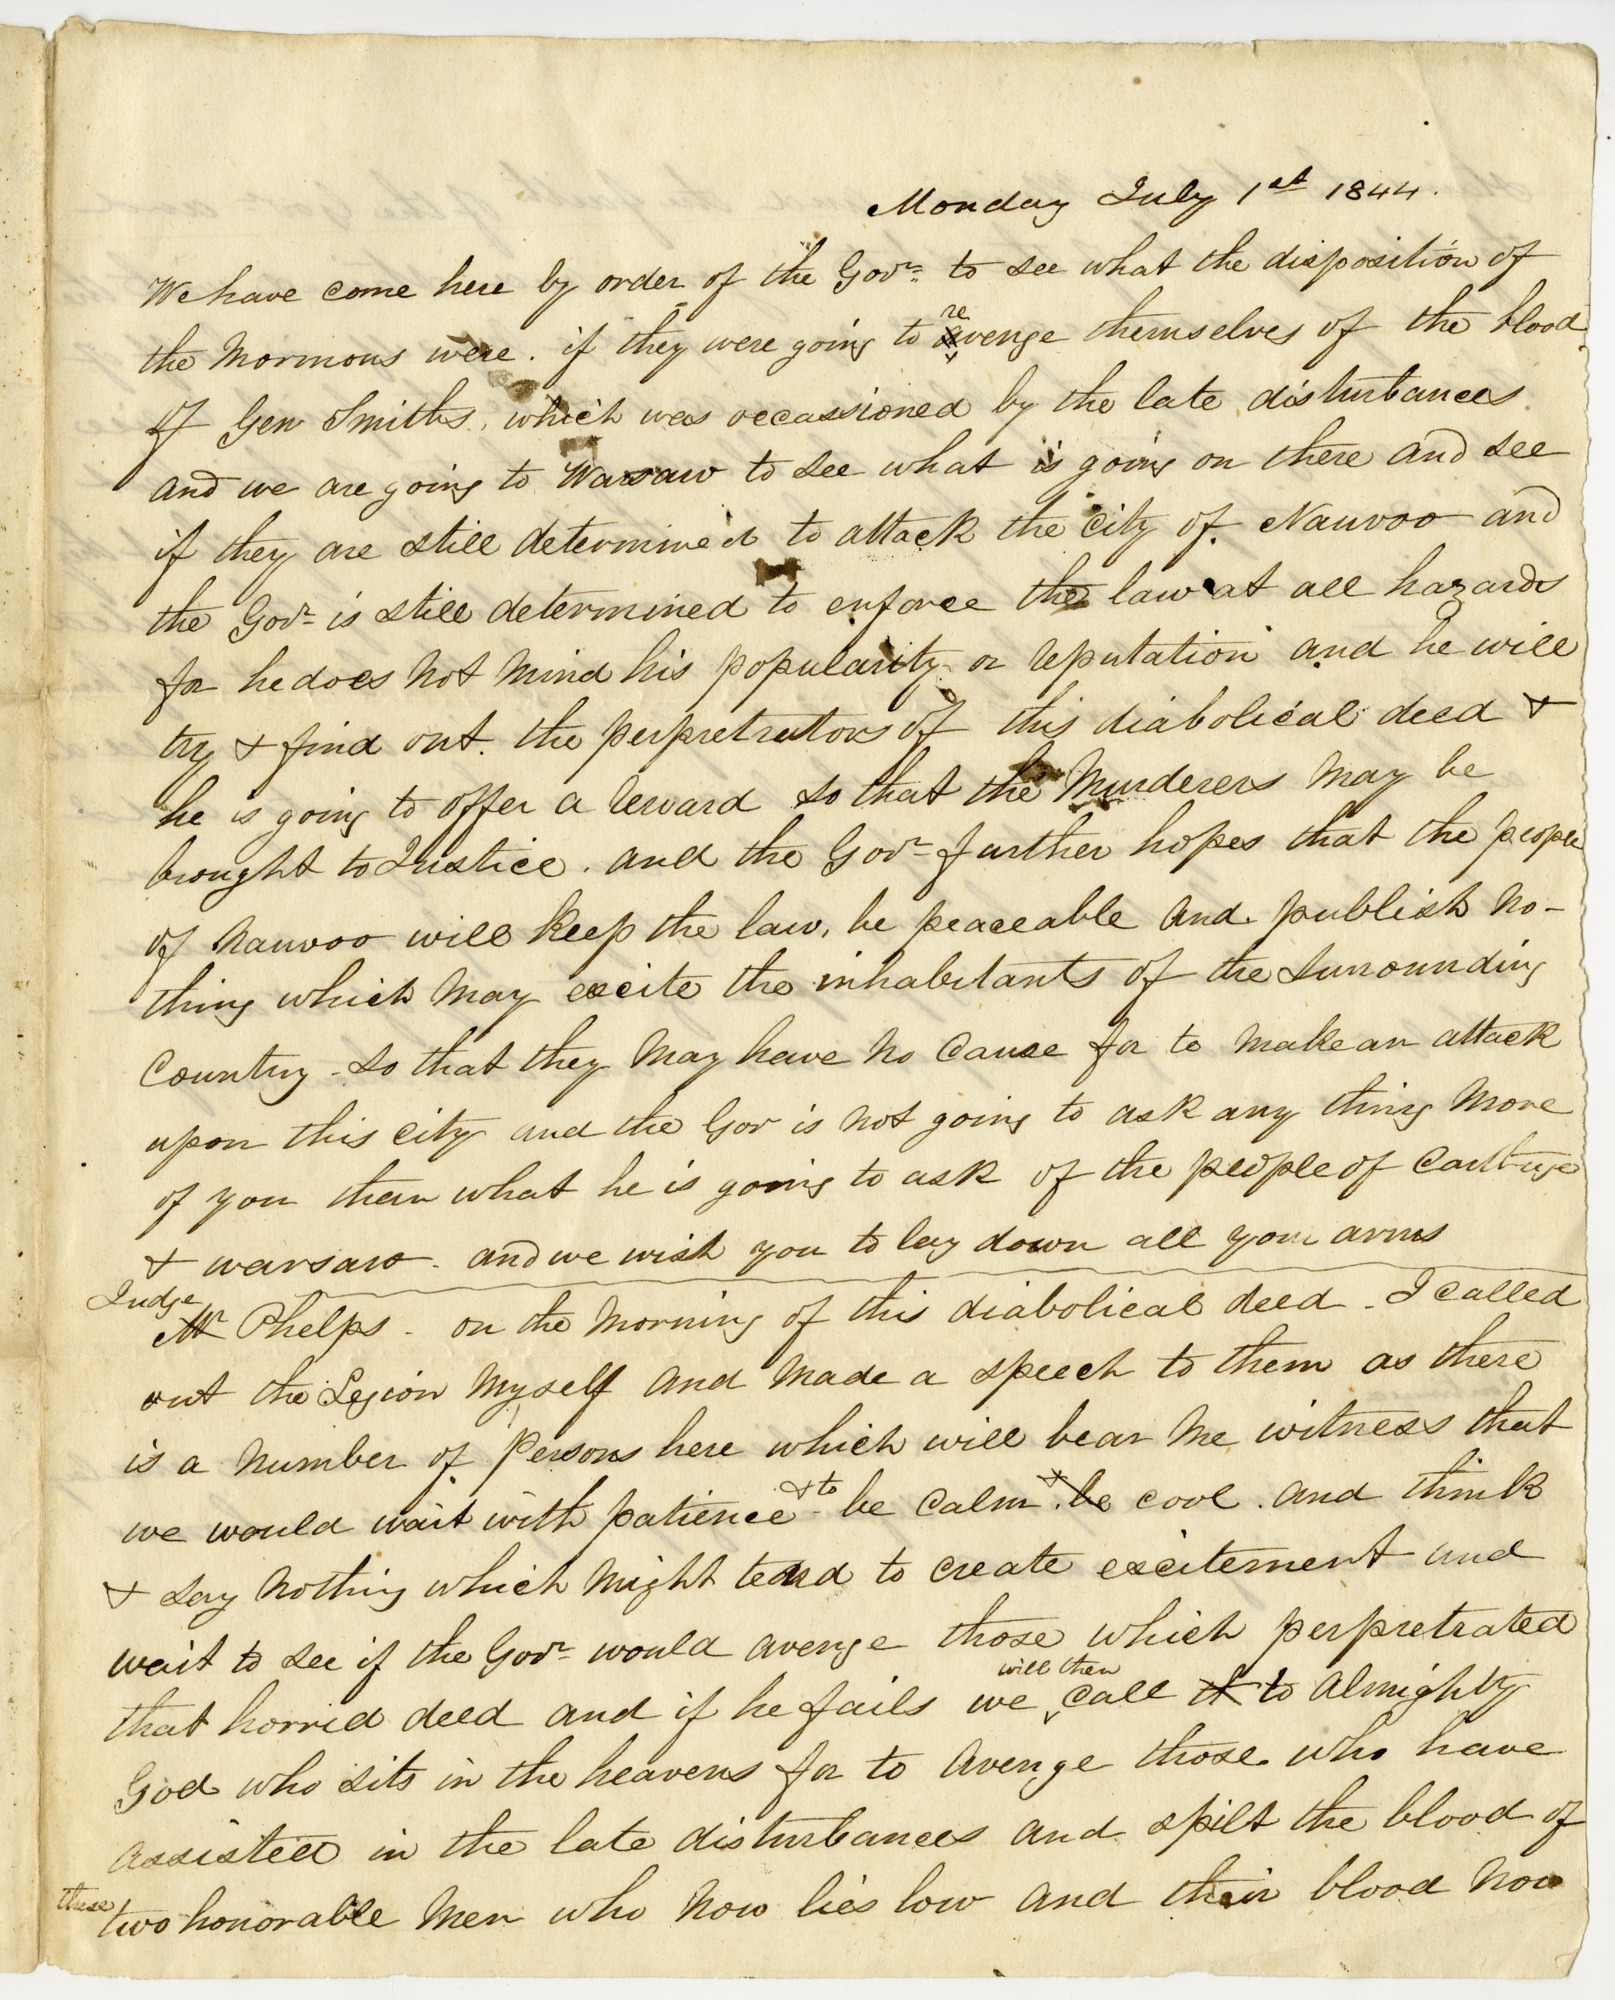 Monday July 1st 1844.
We have come here by order of the Govr= to see what the disposition of
the Mormons were. if they were going to revenge themselves of the blood
of Gen Smiths, which was occassioned by the late disturbances
and we are going to Warsaw to see what is going on there and see
if they are still determined to attack the city of Nauvoo and
the Govr= is still determined to enforce the law at all hazards
for he does not mind his popularity or reputation and he will
try & find out the perpretrators of this diabolical deed &
he is going to offer a reward so that the Murderers may be
brought to Justice. and the Govr= further hopes that the people
of Nauvoo will keep the law, be peaceable and publish no-
thing which may excite the inhabitants of the surrounding
Country - so that they may have no cause for to make an attack
upon this city and the Gov is not going to ask any thing more
of you than what he is going to ask of the people of Carthage
& warsaw - and we wish you to lay down all your arms
Judge
Mr Phelps - on the morning of this diabolical deed - I called
out the Legion myself and made a speech to them as there
is a number of persons here which will bear me witness that
we would wait with patience & to be calm & be cool. and think
& say nothing which might tend to create excitement and
wait to see if the Govr= would avenge those which perpretrated
that horrid deed and if he fails we will then call it to Almighty
God who sits in the heavens for to avenge those who have
assisted in the late disturbances and spilt the blood of
these two honorable men who now lies low and their blood now